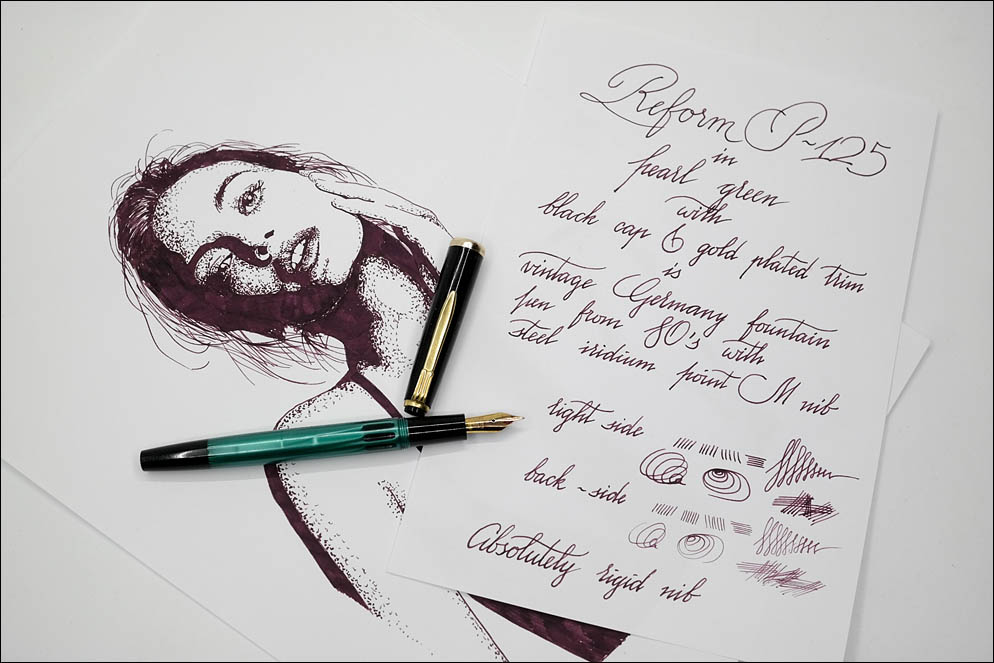 Reform P-125
in
pearl green
with
black cap & gold plated trim
is
vintage Germany fountain
pen from 80's with
steel iridium point M nib
right side
back ~ side
Absolutely rigid nib